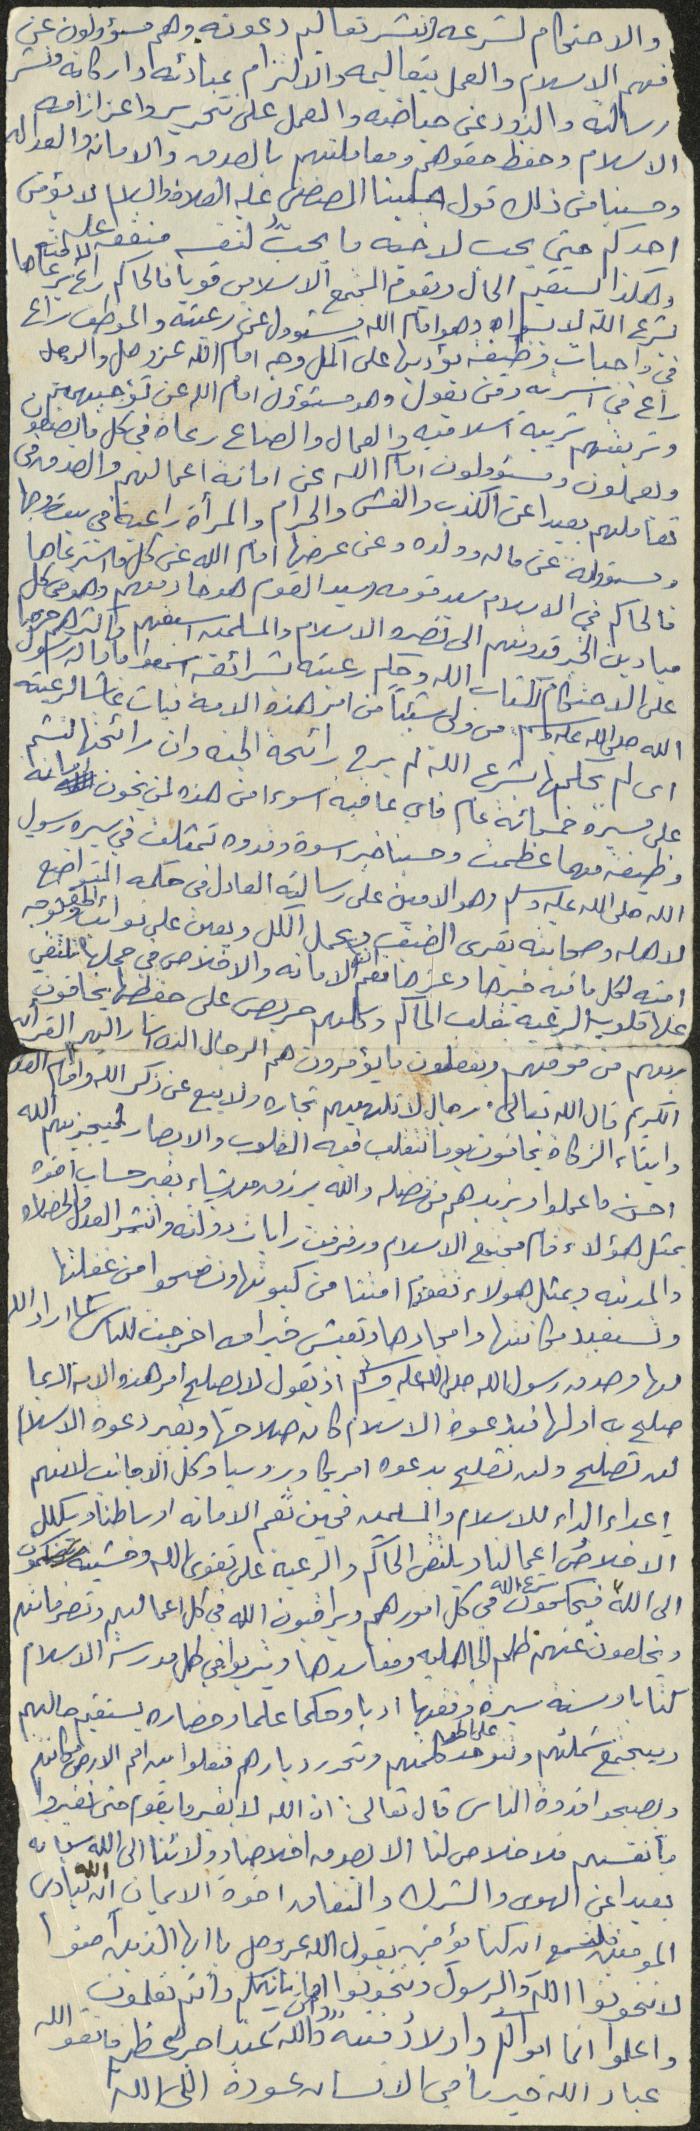 والاحتكام لشرعه ونشر تعاليم دعوته وهم مسؤولون عن
فهم الاسلام والعمل بتعاليمه والالتزام بمبادئه واركانه ونشر
رسالته والذود عن حياضه والعمل على تحرير واعزاز امه
الاسلام وحفظ حقوقهم ومعاملتهم بالصدق والامانه والعداله
وحسبنا من ذلك قول نبينا المصطفى عليه الصلاة والسلام لا يؤمن
احدكم حتى يحب لاخيه ما يحبُّ لنفسه متفق عليه
وهكذا يستقيم الحال ويقوم المجتمع الاسلامي قويا فالحاكم راع يرعاها
بشرع الله لا بسواه وهو امام الله مسئوول عن رعيته والموظف راع
في واجبات وظيفته يؤديها على اكمل وجه امام الله عز وجل والرجل
راع في اسرته ومن يعول وهو مسئوول امام الله عن توجيههم
وتربيتهم تربية اسلاميه والعمال والصناع رعاه في كل ما يصنعون
ويعملون ومسئوولون امام الله عن امانة اعمالهم والصدق في
تعاملهم بعيدا عن الكذب والغش والحرام والمرأة راعية في بيت زوجها
ومسؤولة عن ماله وولده وعن عرضها امام الله عن كل ما استرعاها
فالحاكم في الاسلام سيد قومه وسيد القوم هو خادمهم وهو في كل
ميادين الخير قدوتهم الى نصره الاسلام والمسلمين اسبقهم واكثرهم حرصا
على الاحتكام لكتاب الله وحكم رعيته بشرائعه اسمعوا ما قاله رسول
الله صلى الله عليه وسلم من ولى شيئاً من امر هذه الامه فبات غاشا لرعيته
اى لم يحكمها بشرع الله لم يرح رائحة الجنه وان رائحتها لتشم
على مسيرة خمسمائة عام فاي عاقبة اسوء من هذه لمن يخون امانه
وظيفته مهما عظمت وحسبنا خير اسوة وقدوه تمثلت في سيره رسول
الله صلى الله عليه وسلم وهو الامين على رسالته العادل في حكمه المتواضع
لاهله وصحابته يقرى الضيف ويحمل الكل ويعين على نوائب الحق يوجه
امته لكل ما فيه خيرها وعزها نعم انها الامانه والاخلاص في حملها يلتقي
عليها قلوب الرعيه بقلب الحاكم وكلهم حريص على حفظها يخافون
ربهم من فوقهم ويفعلون ما يؤمرون هم الرجال الذين اشار اليهم القرآن
الكريم قال الله تعالى . رجال لا تلهيهم تجاره ولا بيع عن ذكر الله واقام الصلاة
وايتاء الزكاة يخافون يوما تتقلب فيه القلوب والابصار ليجزيهم الله
احسن ما عملوا ويزيدهم من فضله والله يرزق من يشاء بغير حساب اخوة
بمثل هؤلاء قام مجتمع الاسلام ورفرفت رايات دولته وانتشر العدل والحضاره
والمدنيه وبمثل هولاء تفوز امتنا من كبوتها وتصحوا من غفلتها
وتستعيد مكانتها وامجادها وتعيش خير امه اخرجت للناس كما اراد الله
لها وصدق رسول الله صلى الله عليه وسلم اذ يقول لا يصلح امر هذه الامه الا بما
صلح به اولها فبدعوة الاسلام كان صلاحها وبغير دعوة الاسلام
لن تصلح ولن تصلح بدعوه امريكا وروسيا وكل الاجانب لانهم
اعداء الداء للاسلام والمسلمين فحين تعم الامانه اوساطنا ويكلل
الاخلاصُ اعمالنا ويلتقي الحاكم والرعية على تقوى الله وخشيته
الى الله فيحكمون شرع الله في كل امورهم ويراقبون الله في كل اعمالهم وتصرفاتهم
ويخلعون عنهم ظلم الجاهليه ومفاسدها ويتربوا في ظل مدرسة الاسلام
كتابا وسنه سيرة وفقها ادبا وحكما علما وحضاره يستقيم حالهم
ويجتمع شملهم وتتوحد على الحق كلمتهم وتتحرر ديارهم فتعلوا بين امم الارض مكانتهم
ويصبحوا قدوة الناس قال تعالى: ان الله لا يغير ما بقوم حتى يغيروا
ما بأنفسهم فلا خلاص لنا الا بصدق اخلاصنا وولائنا الى الله سبحانه
بعيدا عن الهوى والشرك والنفاق اخوة الايمان ان الله ينادى
المومنين ان كنا مؤمنين يقول الله عز وجل يا ايها الذين آمنوا
لا تخونوا الله والرسول وتخونوا اماناتكم وأنتم تعلمون
واعلموا انما اموالكم واولادكم فتنه وان الله عنده اجر عظيم فاتقوا الله
عباد الله خير ما في الانسان عودة الى الله